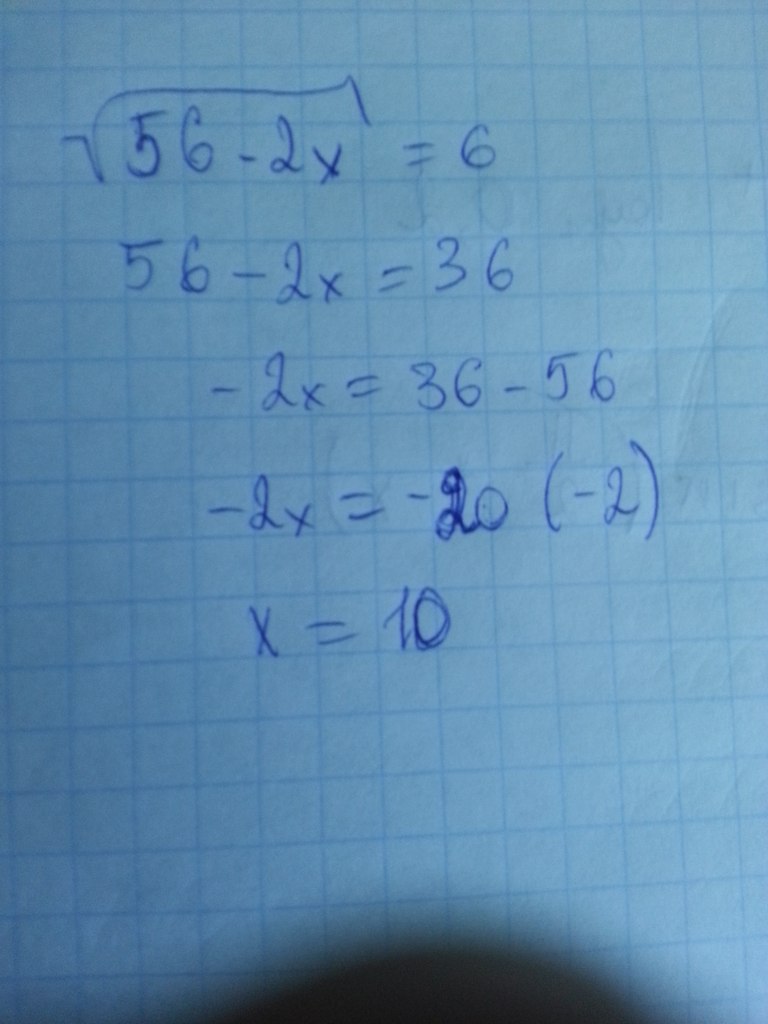 √56-2x = 6
56-2x=36
-2x=36-56
-2x=-20 (-2)
x=10